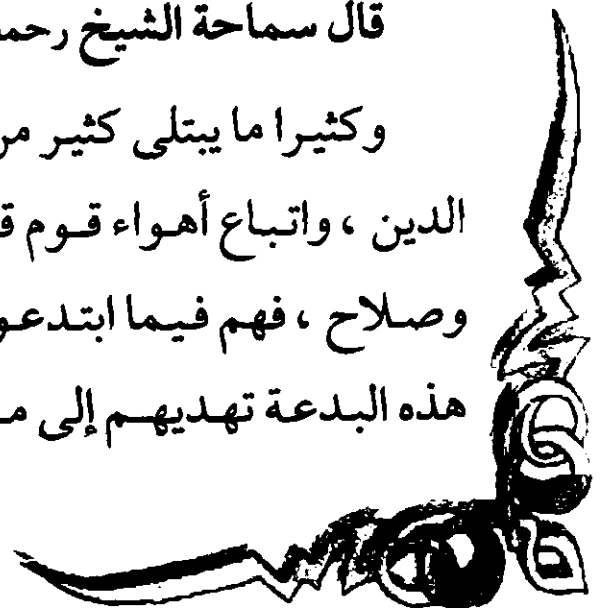 قال سماحة الشيخ
وكثيرا ما يبتلى كثير
الدين ، واتباع أهواء قوم
وصلاح ، فهم فيما
هذه البدعة تهديهم إلى